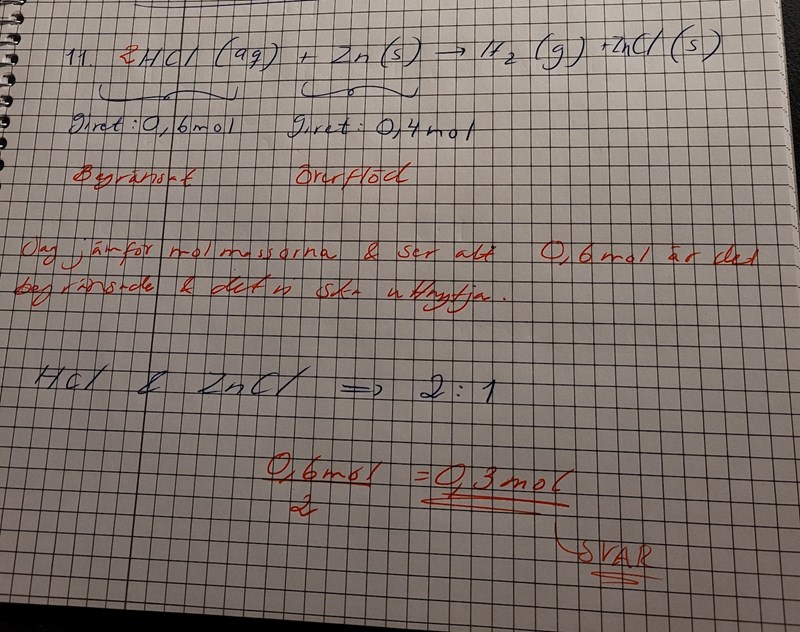 11. 2HCl (aq) + Zn(s) → H₂ (g) + ZnCl (s)
Givet: 0,6mol Givet: 0,4mol
Begränsat Överflöd
Jag jämför molmassorna & ser att 0,6 mol är det
begränsade & det vi ska utnytja.
HCl & ZnCl => 2:1
0,6mol
2
= 0,3 mol
SVAR